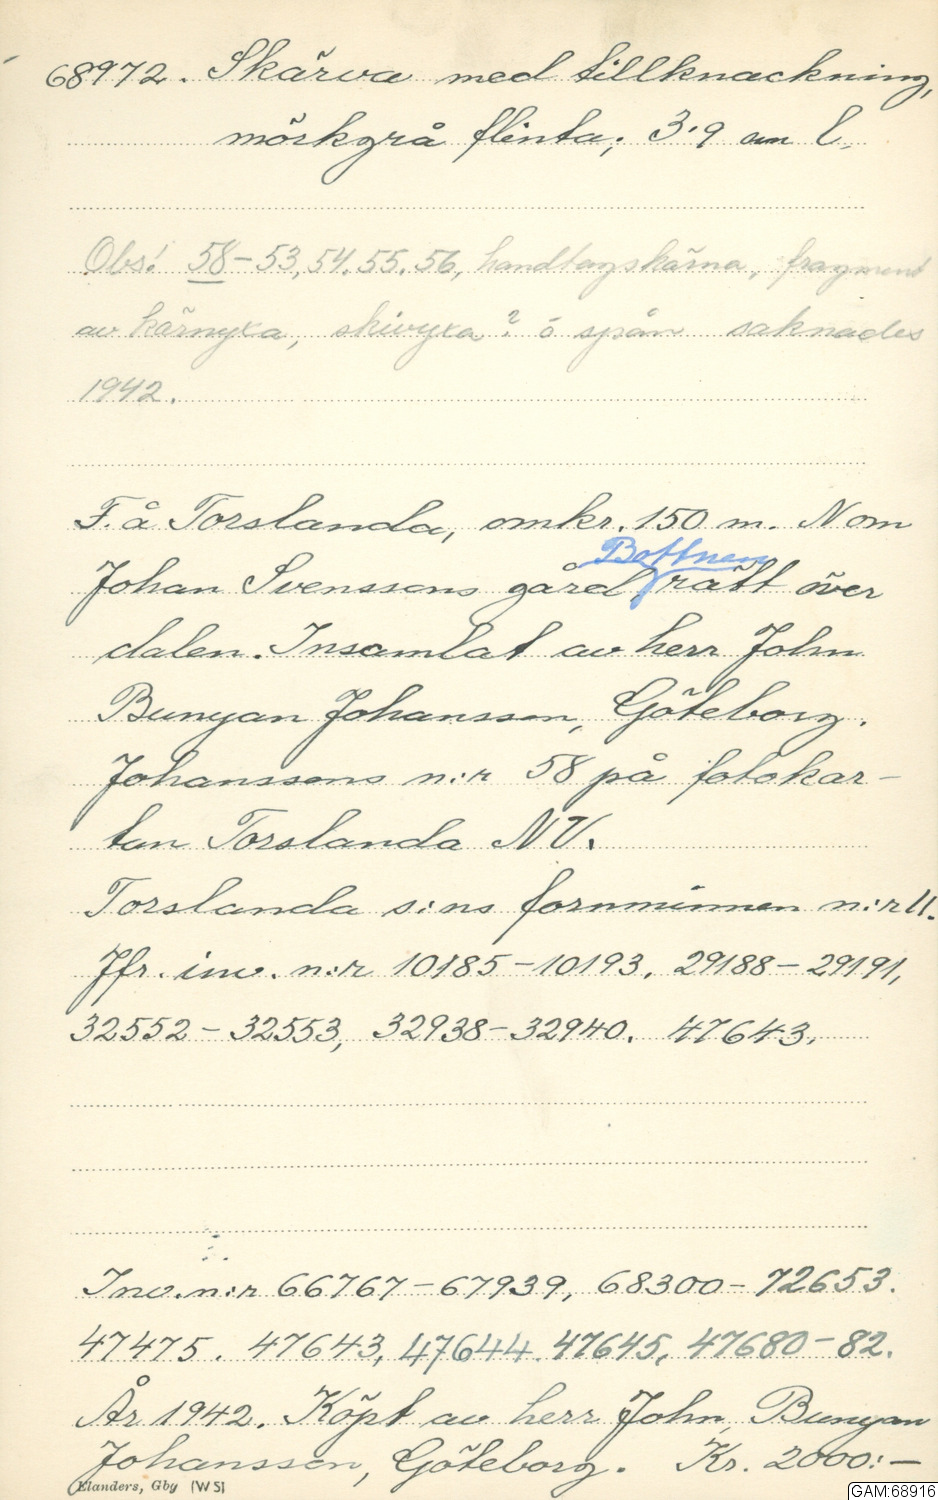 68972. Skärva med tillknackning,
mörkgrå flinta; 3'9 cm l.
Obs! 58-53, 54. 55. 56, handtagskärna, fragment
av kärnyxa, skivyxa? o spån saknades
1942.
F. å Torslanda, omkr. 150 m. N om
Bottnen
Johan Svenssons gård, rätt över
dalen. Insamlat av herr John
Bunyan Johansson, Göteborg.
Johanssons n:r 58 på fotokar-
tan Torslanda NV.
Torslanda s:ns fornminnen n:r 11.
Jfr. inv. n:r 10185-10193, 29188-29191,
32552-32553, 32938-32940. 47643.
Inv. n:r 66767-67939, 68300-72653.
47475. 47643, 47644. 47645, 47680-82.
År 1942. Köpt av herr John Bunyan
Johansson, Göteborg. Kr. 2000:-
Elanders, Gby (WS)
GAM:68916